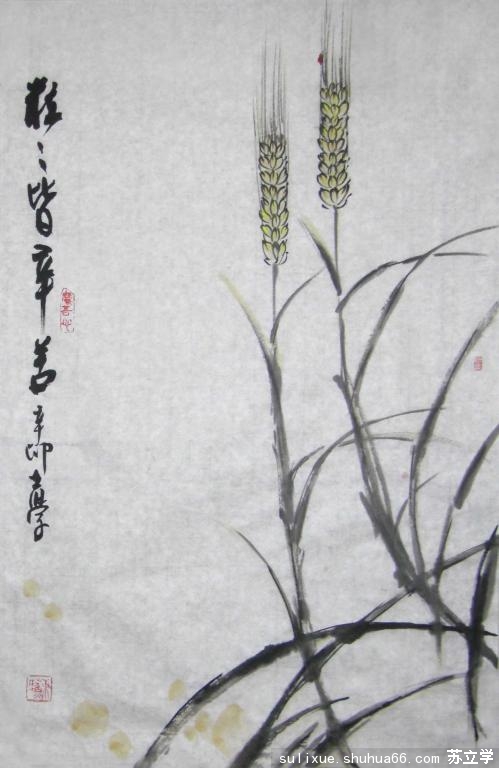 粒〻皆辛苦辛卯立學
sulixue.shuhua66.com 苏立学